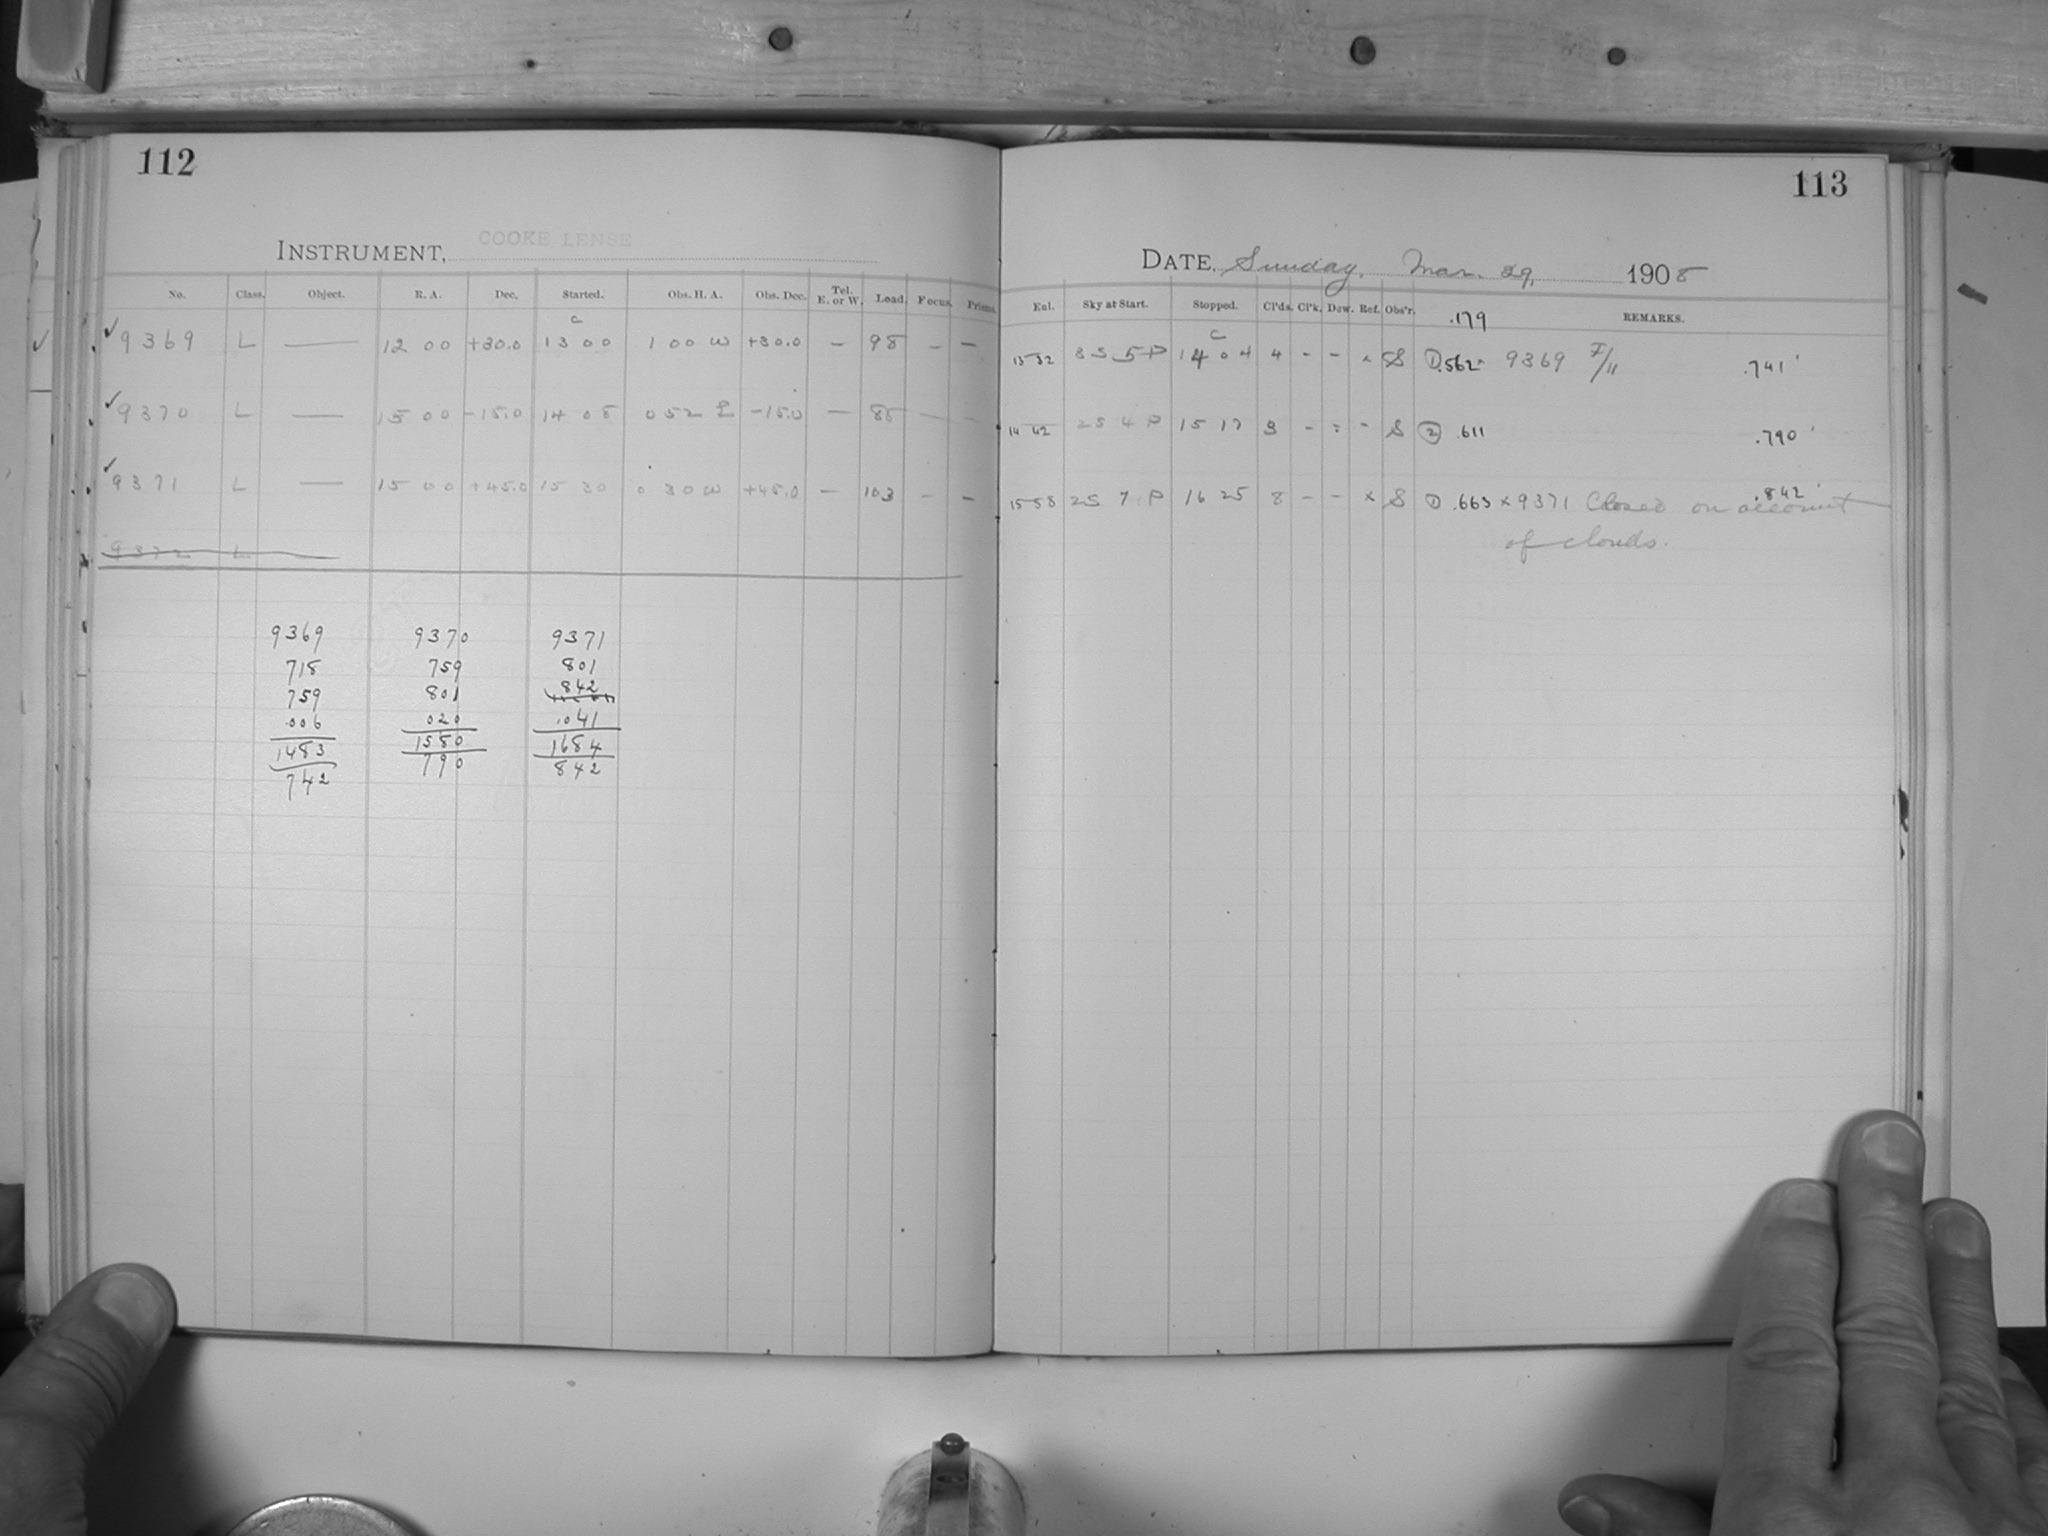 112
INSTRUMENT, COOKE LENSE
No. Class. Object. R. A. Dec. Started. Obs. H. A. Obs. Dec. Tel. E. or W. Load. Focus. Prisms.
c
✓ 9369 L — 12 00 +30.0 13 00 1 00 W +30.0 — 98 — —
✓ 9370 L — 15 00 -15.0 14 08 0 52 E -15.0 — 85 — —
✓ 9371 L — 15 00 +45.0 15 30 0 30 W +45.0 — 103 — —
9372 L
9369 9370 9371
718 759 801
759 801 842
.006 020 .041
1483 1580 1684
742 790 842
113
DATE, Sunday, Mar. 29, 1908
Eul. Sky at Start. Stopped. Cl'ds. Cl'k. Dew. Ref. Obs'r. .179 REMARKS.
c
13 32 3S 5 P 14 04 4 - - × S ① .562 × 9369 I/11 .741
14 42 2S 4 P 15 17 3 - - - S ② .611 .790
15 58 2S 7 P 16 25 8 - - × S ① .663 × 9371 Closed on account .842
of clouds.